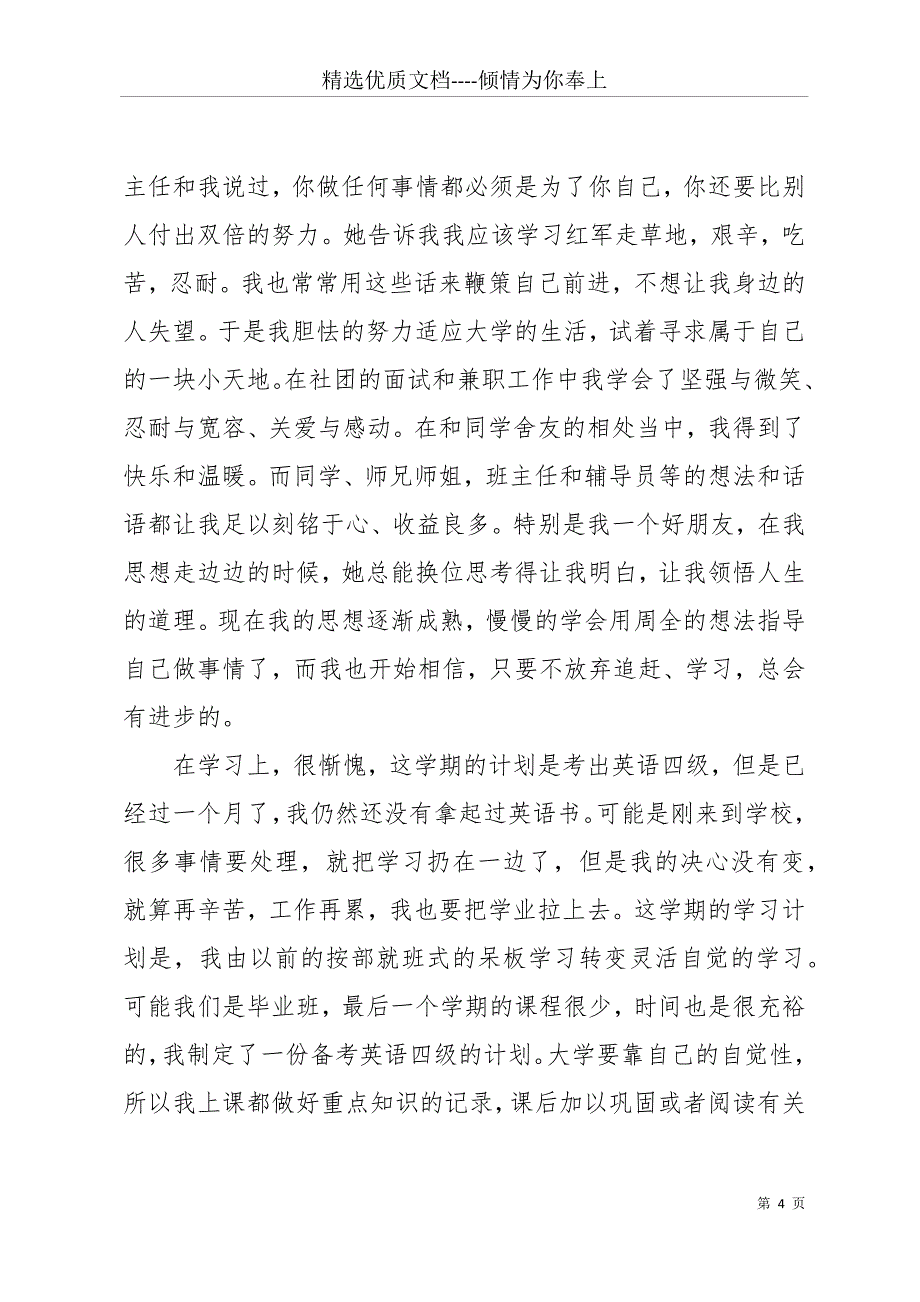 精选优质文档----倾情为你奉上
主任和我说过，你做任何事情都必须是为了你自己，你还要比别
人付出双倍的努力。她告诉我我应该学习红军走草地，艰辛，吃
苦，忍耐。我也常常用这些话来鞭策自己前进，不想让我身边的
人失望。于是我胆怯的努力适应大学的生活，试着寻求属于自己
的一块小天地。在社团的面试和兼职工作中我学会了坚强与微笑、
忍耐与宽容、关爱与感动。在和同学舍友的相处当中，我得到了
快乐和温暖。而同学、师兄师姐，班主任和辅导员等的想法和话
语都让我足以刻铭于心、收益良多。特别是我一个好朋友，在我
思想走边边的时候，她总能换位思考得让我明白，让我领悟人生
的道理。现在我的思想逐渐成熟，慢慢的学会用周全的想法指导
自己做事情了，而我也开始相信，只要不放弃追赶、学习，总会
有进步的。
在学习上，很惭愧，这学期的计划是考出英语四级，但是已
经过一个月了，我仍然还没有拿起过英语书。可能是刚来到学校，
很多事情要处理，就把学习扔在一边了，但是我的决心没有变，
就算再辛苦，工作再累，我也要把学业拉上去。这学期的学习计
划是，我由以前的按部就班式的呆板学习转变灵活自觉的学习。
可能我们是毕业班，最后一个学期的课程很少，时间也是很充裕
的，我制定了一份备考英语四级的计划。大学要靠自己的自觉性，
所以我上课都做好重点知识的记录，课后加以巩固或者阅读有关
第 4 页